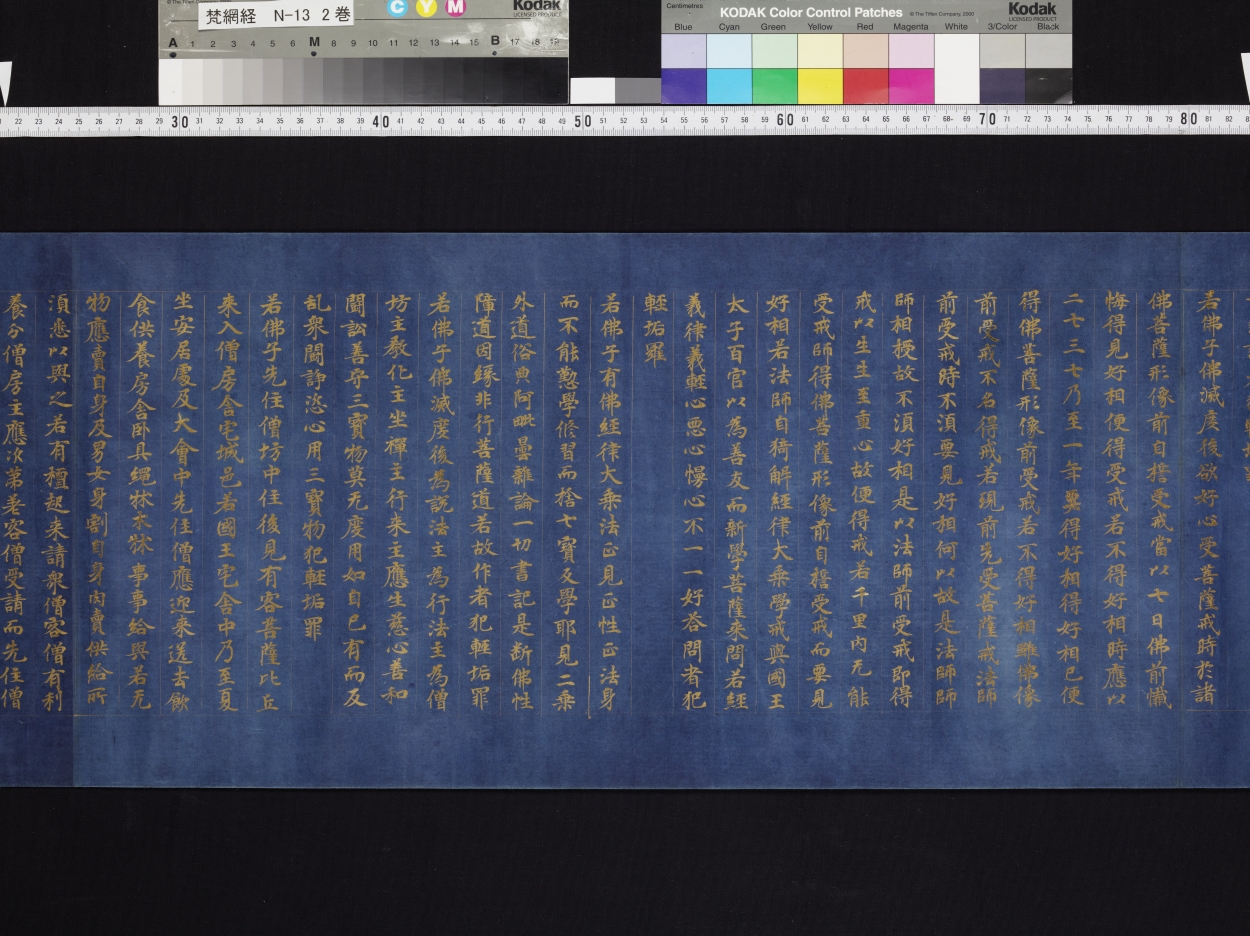 梵網経 N-13 2巻
Kodak
LICENSED PRODUCT
C Y M
A 1 2 3 4 5 6 M 8 9 10 11 12 13 14 15 B 17 18 19
Centimetres
KODAK Color Control Patches
© The Tiffen Company, 2000
Kodak
LICENSED PRODUCT
Blue Cyan Green Yellow Red Magenta White 3/Color Black
22 23 24 25 26 27 28 29 30 31 32 33 34 35 36 37 38 39 40 41 42 43 44 45 46 47 48 49 50 51 52 53 54 55 56 57 58 59 60 61 62 63 64 65 66 67 68 69 70 71 72 73 74 75 76 77 78 79 80 81 82
若佛子佛滅度後欲好心受菩薩戒時於諸
佛菩薩形像前自誓受戒當以七日佛前懺
悔得見好相便得受戒若不得好相時應以
二七三七乃至一年要得好相得好相已便
得佛菩薩形像前受戒若不得好相雖佛像
前受戒不名得戒若現前先受菩薩戒法師
前受戒時不須要見好相何以故是法師師
師相授故不須好相是以法師前受戒即得
戒以生生至重心故便得戒若千里内无能
受戒師得佛菩薩形像前自誓受戒而要見
好相若法師自猗解經律大乘學戒與國王
太子百官以為善友而新學菩薩來問若經
義律義輕心惡心慢心不一一好荅問者犯
輕垢罪
若佛子有佛經律大乘法正見正性正法身
而不能懃學脩習而捨七寶反學耶見二乘
外道俗典阿毗曇雜論一切書記是斷佛性
障道因緣非行菩薩道若故作者犯輕垢罪
若佛子佛滅度後為說法主為行法主為僧
坊主教化主坐禪主行来主應生慈心善和
鬪訟善守三寶物莫无度用如自己有而反
乱衆鬪諍恣心用三寶物犯輕垢罪
若佛子先住僧坊中住後見有客菩薩比丘
来入僧房舍宅城邑若國王宅舍中乃至夏
坐安居處及大會中先住僧應迎来送去飲
食供養房舍卧具繩牀木牀事事給與若无
物應賣自身及男女身割自身肉賣供給所
須悉以與之若有檀起来請衆僧客僧有利
養分僧房主應次第差客僧受請而先住僧